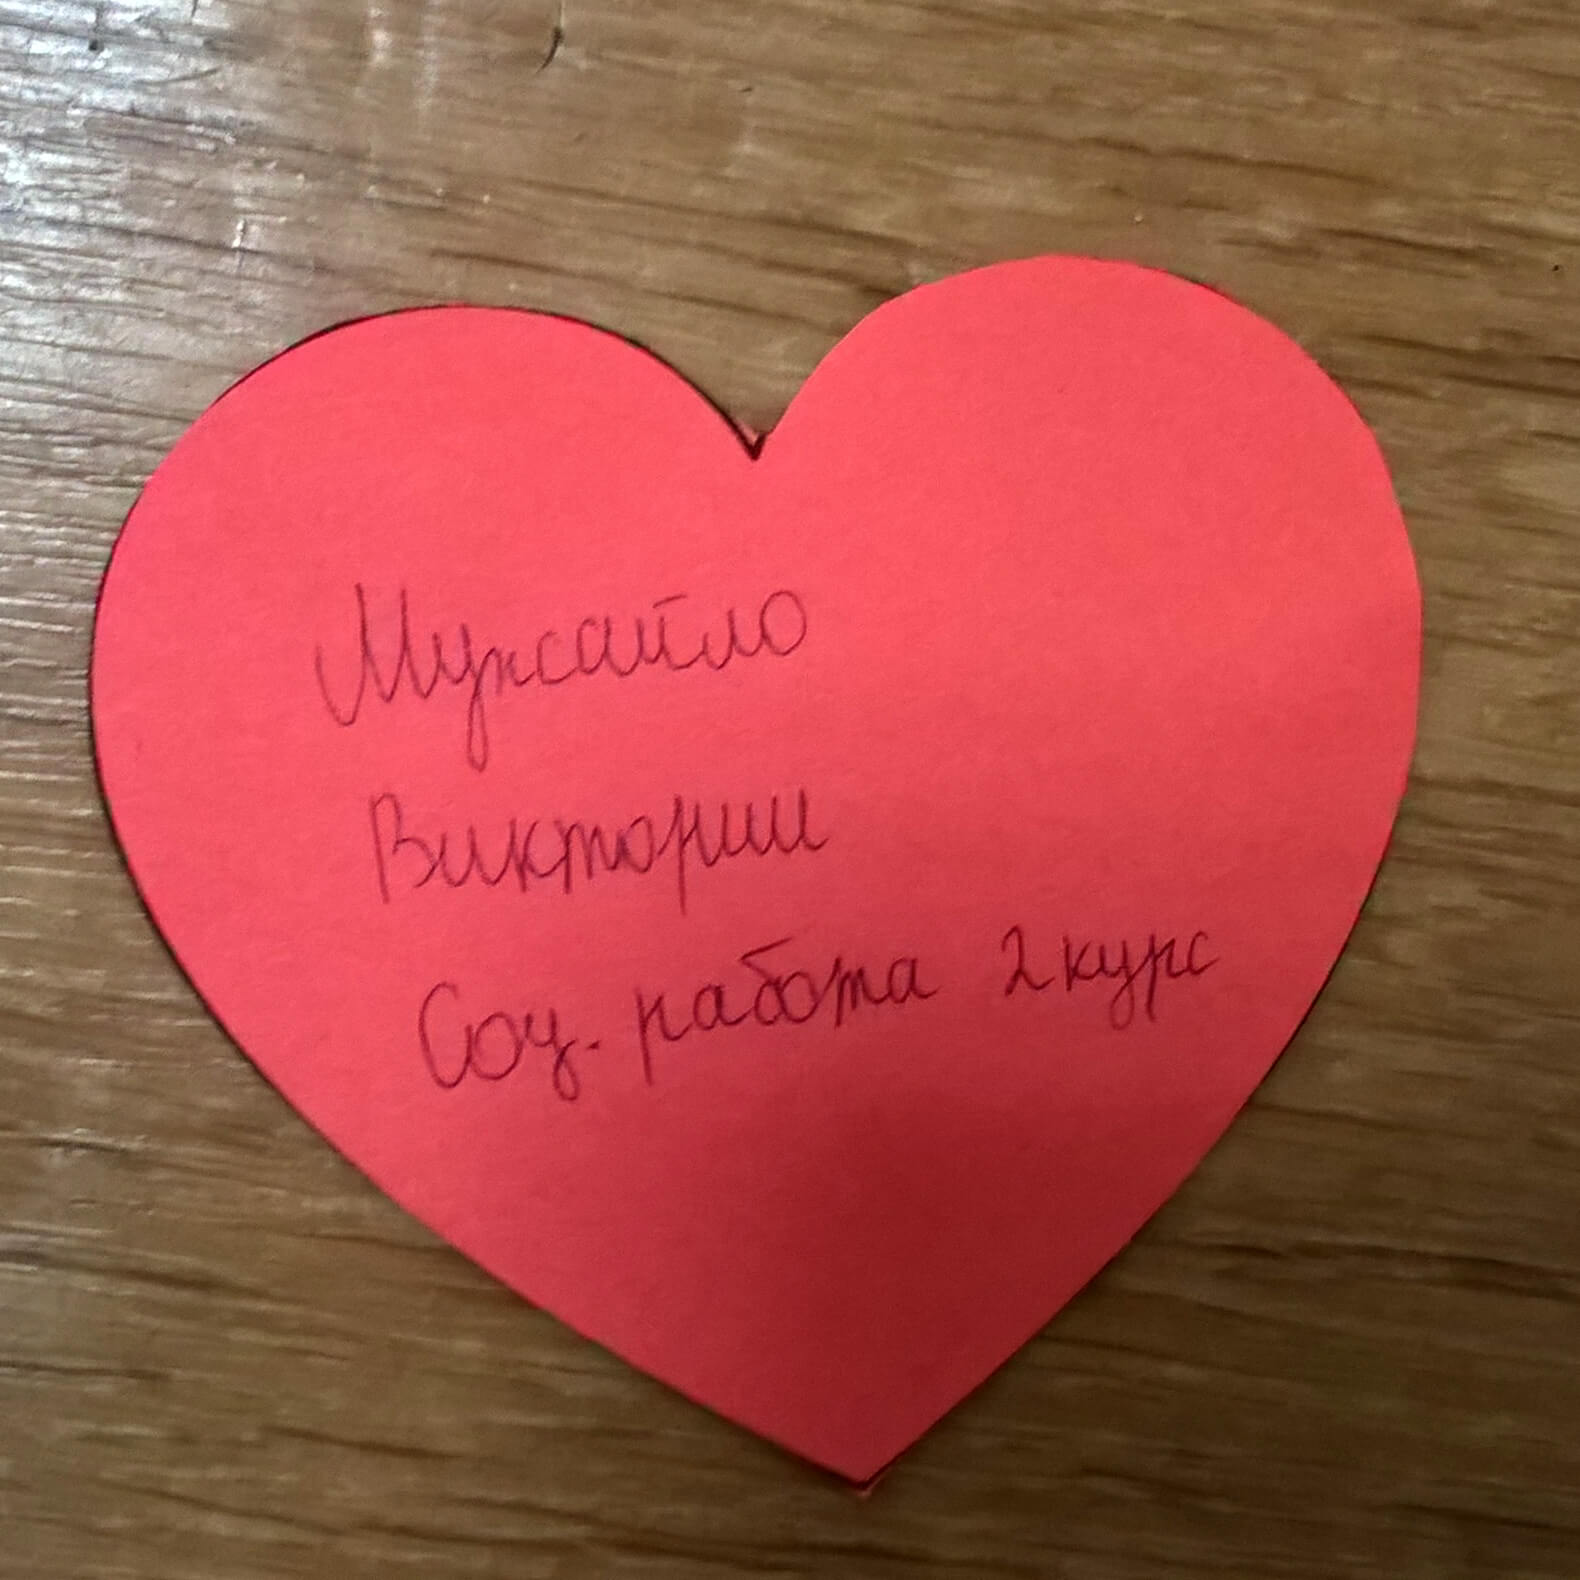 Мужайло
Виктории
Соц. работа 2 курс